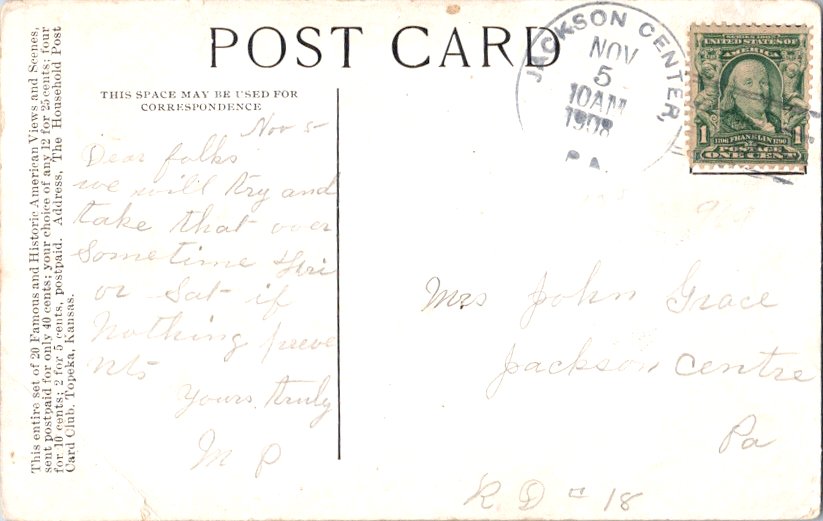 POST CARD
THIS SPACE MAY BE USED FOR
CORRESPONDENCE
JACKSON CENTER,
NOV
5
10AM
1908
PA.
SERIES 1902
UNITED STATES OF
AMERICA
1 1
1706 FRANKLIN 1790
POSTAGE
ONE CENT
This entire set of 20 Famous and Historic American Views and Scenes,
sent postpaid for only 40 cents; your choice of any 12 for 25 cents; four
for 10 cents; 2 for 5 cents, postpaid. Address, The Household Post
Card Club, Topeka, Kansas.
Nov 5-
Dear folks
we will try and
take that over
Sometime Fri
or Sat if
Nothing preve
nts
Yours truly
M P
Mrs John Grace
Jackson Centre
Pa
R D 18